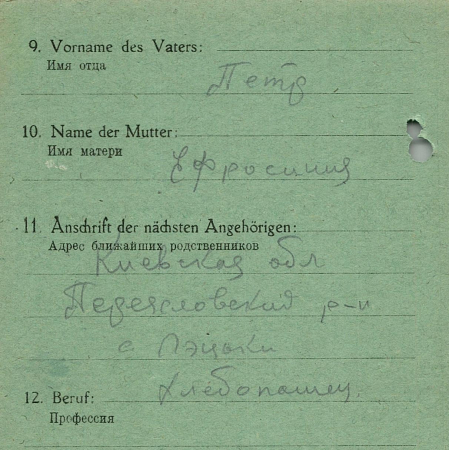 9. Vorname des Vaters:
Имя отца
Петр
10. Name der Mutter:
Имя матери
Ефросиния
11. Anschrift der nächsten Angehörigen:
Адрес ближайших родственников
Киевская обл
Переяловский р-н
с Пэцьки
Хлебопашец
12. Beruf:
Профессия